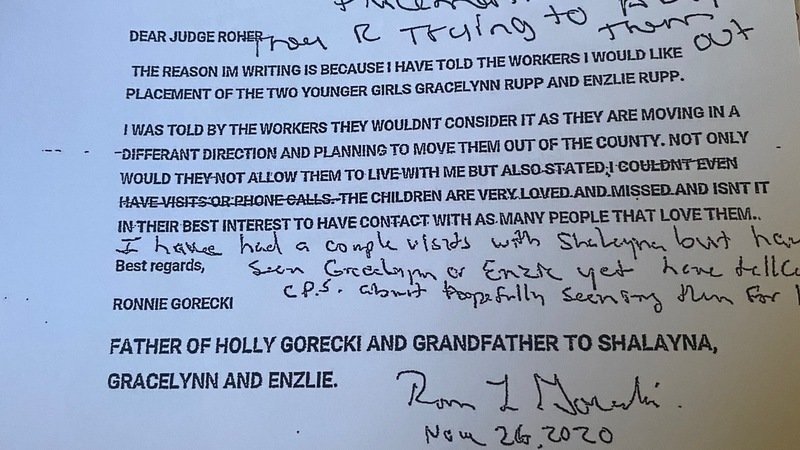 DEAR JUDGE ROHER
They R Trying to them out
THE REASON IM WRITING IS BECAUSE I HAVE TOLD THE WORKERS I WOULD LIKE
PLACEMENT OF THE TWO YOUNGER GIRLS GRACELYNN RUPP AND ENZLIE RUPP.
I WAS TOLD BY THE WORKERS THEY WOULDNT CONSIDER IT AS THEY ARE MOVING IN A
DIFFERANT DIRECTION AND PLANNING TO MOVE THEM OUT OF THE COUNTY. NOT ONLY
WOULD THEY NOT ALLOW THEM TO LIVE WITH ME BUT ALSO STATED I COULDNT EVEN
HAVE VISITS OR PHONE CALLS. THE CHILDREN ARE VERY LOVED AND MISSED AND ISNT IT
IN THEIR BEST INTEREST TO HAVE CONTACT WITH AS MANY PEOPLE THAT LOVE THEM..
I have had a couple visits with Shalayna but
Best regards,
Seen Gracelynn or Enzie yet have
C.P.S. about hopefully seening them for
RONNIE GORECKI
FATHER OF HOLLY GORECKI AND GRANDFATHER TO SHALAYNA,
GRACELYNN AND ENZLIE.
Ron L Gorecki
Nov 26, 2020